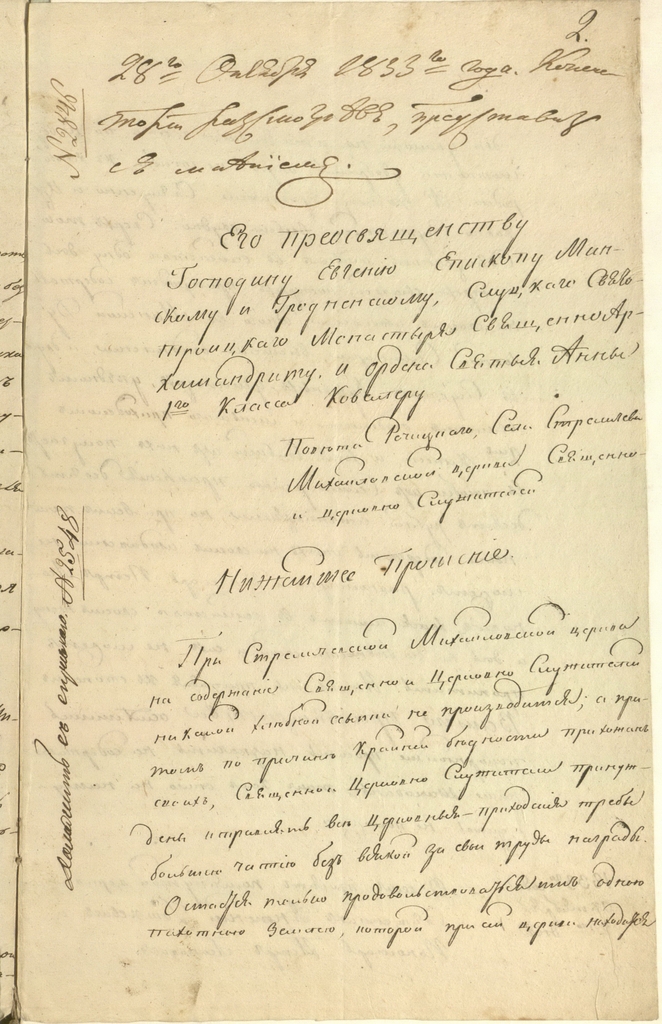 2.
28го Октября 1833го года. Консис-
торія разсмотрѣвъ, представитъ
съ мнѣніемъ.
№ 2846
Его преосвященству
Господину Евгенію Епископу Мин-
скому и Гродненскому, Слуцкаго Свято-
троицкаго Монастыря Священно Ар-
химандриту. и ордена Святыя Анны
1го Класса Ковалеру
Повѣта Речицкаго, Села Стреличева
Михайловской церкви Священно-
и церковно Служителей
Нижайшее Прошеніе.
При Стреличевской Михайловской церкви
на содержаніе Священно и Церковно Служителей
никакой хлѣбной ссыпки не производится; а при-
томъ по причинѣ Крайней бѣдности прихожанъ
своихъ, Священно и Церковно Служители принуж-
дены исправлять всѣ Церковныя-приходскія требы
большею частію безъ всякой за свои труды награды.
Остается только продовольствоваться имъ одною
пахотною землею, которой при сей церкви находится
съ справкою. № 2548